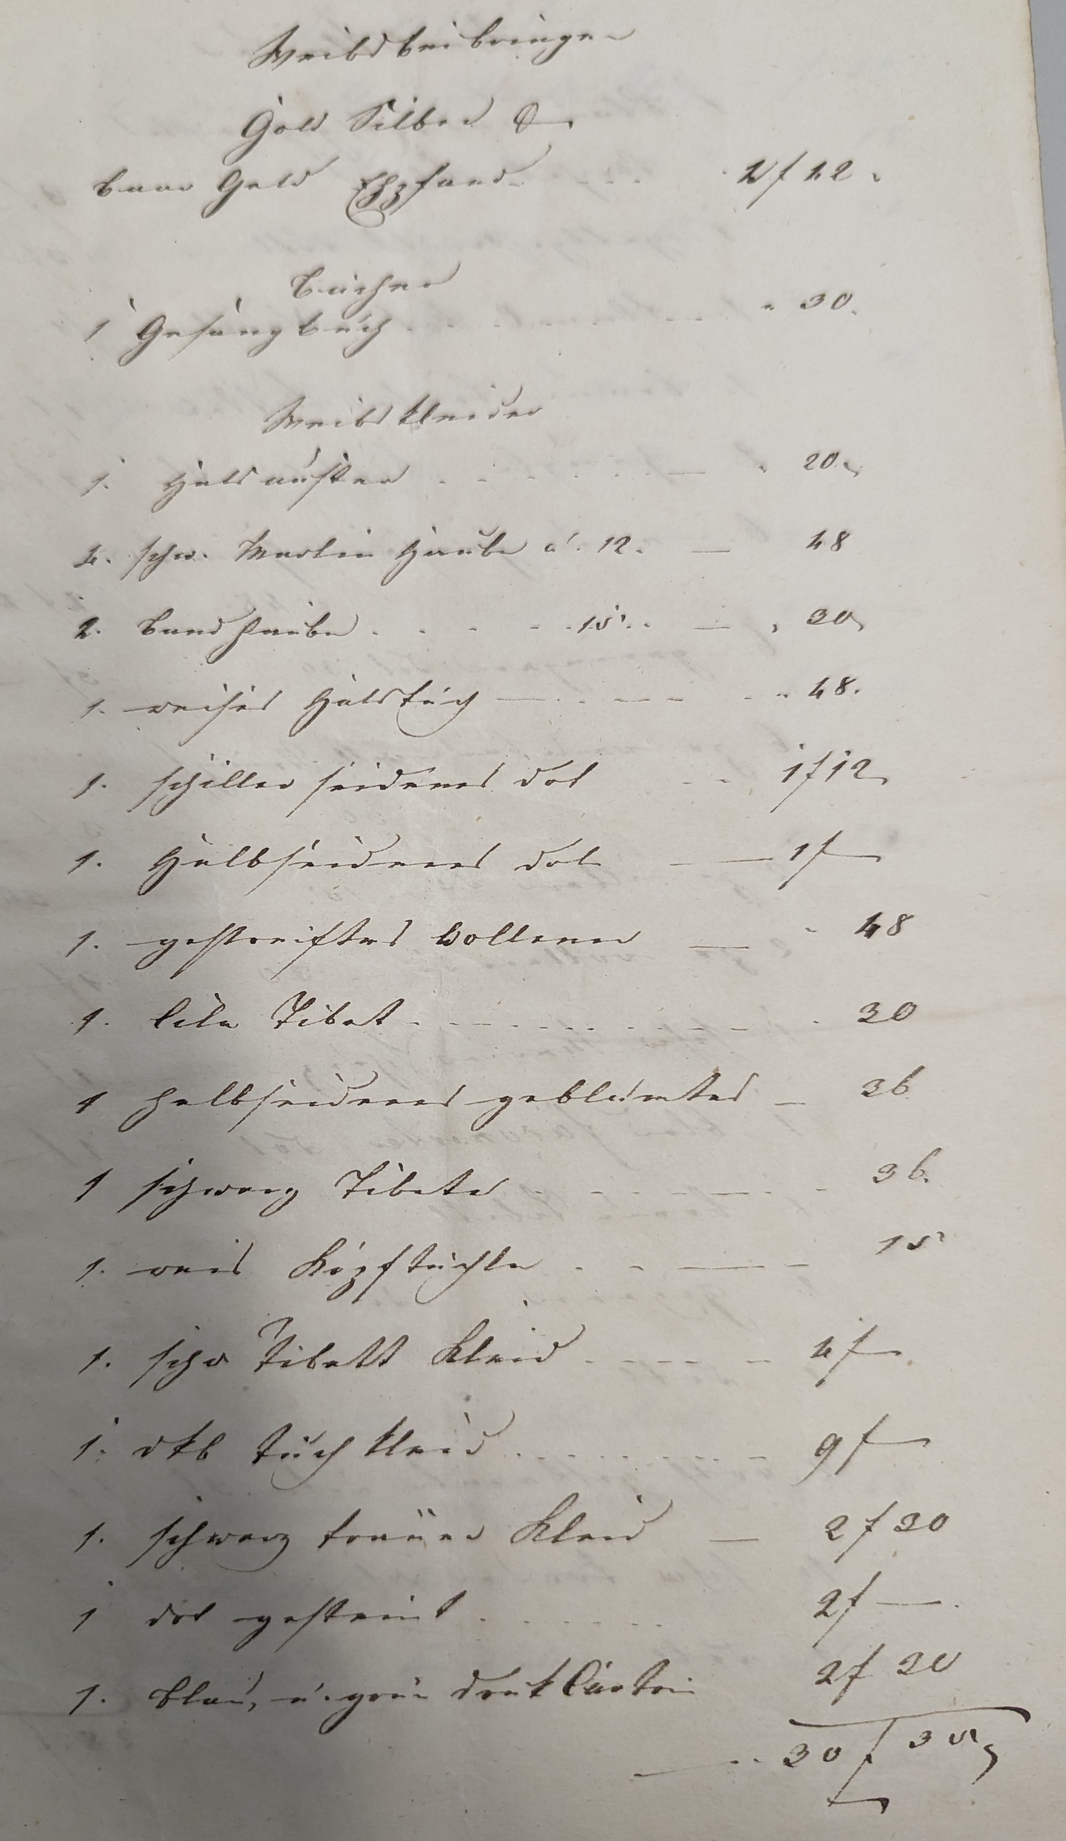 Weibsbeibringen
Gold Silber &
baar Geld Ehpfand 2 f 42.
Bücher
1 Gesangbuch " 30.
Weibskleider
1. Halsnuster " 20.
4. schw. Haube a. 12. — 48
2. Bandhaube 15. — " 30.
1. weises Halstuch — " 48.
1. schiller seidenes dot 1 f 12.
1. Halbseidenes dot — 1 f —
1. gestreiftes wollenes — " 48
1. lila Tibet 30
1 halbseidenes geblümtes — 36
1 schwarz Tibetes 36.
1. weis Kopftüchle 15
1. schw Tibett Kleid 4 f —
1. dkb Tuch Kleid 9 f —
1. schwarz trauer Kleid — 2 f 30
1 dot 2 f —.
1. blau, u. grün druk 2 f 30
30 f 35